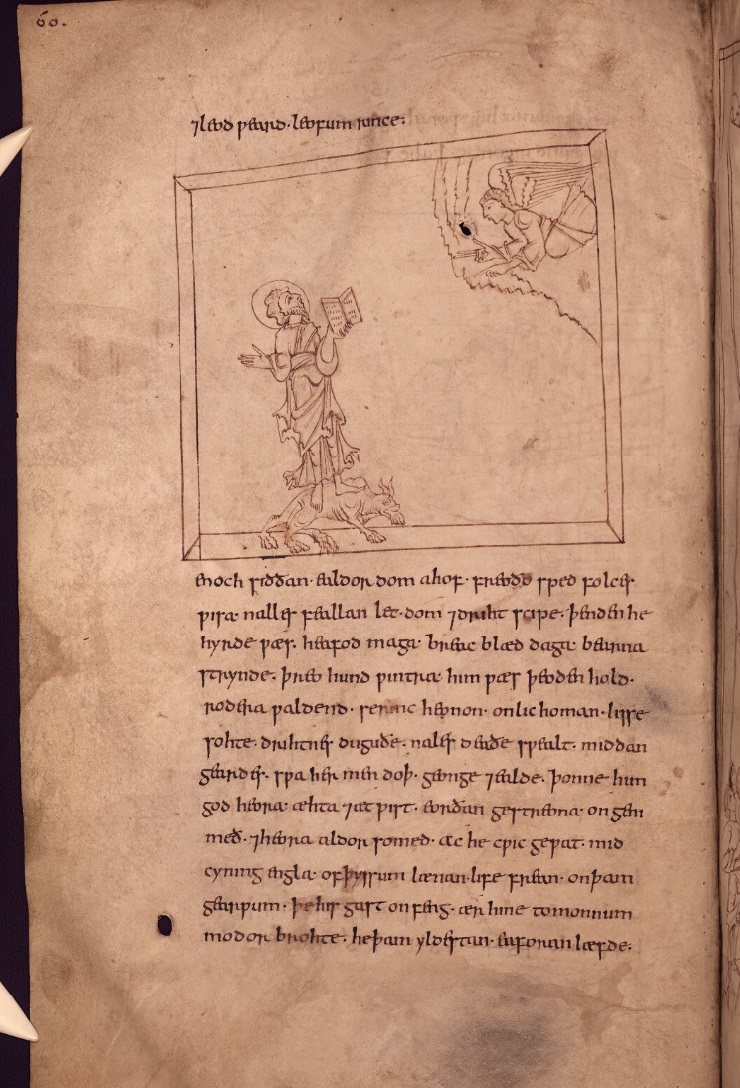 60.
⁊leod peard· leofum rince·
enoch siððan· ealdor dom ahof· freoðo sped folces
ƿisa· nalles feallan let· dom ⁊driht scipe· þenden he
hyrde ƿæs· heafod maga· breac blæd daga· bearna
strynde· þreo hund ƿintra· him ƿæs þeoden hold·
rodera ƿaldend· se rinc heonon· onlic homan· lisse
sohte· drihtnes duguðe· nales deaðe sƿealt· middan
geardes· sƿa her men doþ· geonge ⁊ealde· þonne him
god heora· æhta ⁊æt ƿist· eorðan gestreona· on geni
með· ⁊heora aldor somed· ac he cƿic geƿat· mid
cyning engla· of þyssum lænan· life frean· on þam
gearƿum· þe his gast on feng· ær hine to monnum
modor brohte· he þam yldestan· eaforan læfde·